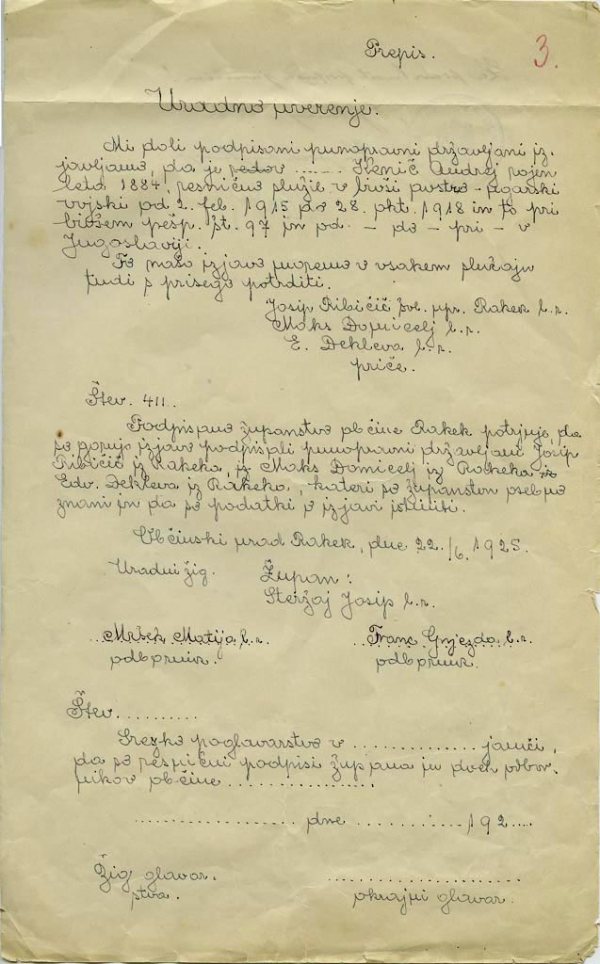 Prepis.
3.
Uradno uverenje.
Mi doli podpisani punopravni državljani iz-
javljamo, da je redov ...... Stenič Andrej rojen
leta 1884, resnično služil v bivši avstro-ogarski
vojski od 2. feb. 1915 do 28. okt. 1918 in to pri
bivšem pešp. št. 97 in od - do - pri - v
Jugoslaviji.
To našo izjavo moremo v vsakem slučaju
tudi s prisego potrditi.
Josip Ribičič žel. upr. Rakek l.r.
Maks Domicelj l.r.
E. Dekleva l.r.
priče.
Štev. 411.
Podpisano županstvo občine Rakek potrjuje, da
so gornjo izjavo podpisali punopravni državljani Josip
Ribičič iz Rakeka, iz Maks Domicelj iz Rakeka in
Edv. Dekleva iz Rakeka, kateri so županstvu osebno
znani in da so podatki v izjavi istiniti.
Občinski urad Rakek, dne 22./6. 1925.
Uradni žig. Župan:
Steržaj Josip l.r.
Mršek Matija l.r. Franc Gnjezda l.r.
odbornik. odbornik.
Štev..........
Srezko poglavarstvo v ............... jamči,
da so resnični podpisi župana in dveh odbor-
nikov občine ..................
.................. dne ............ 192....
Žig glavar-
stva. okrajni glavar.